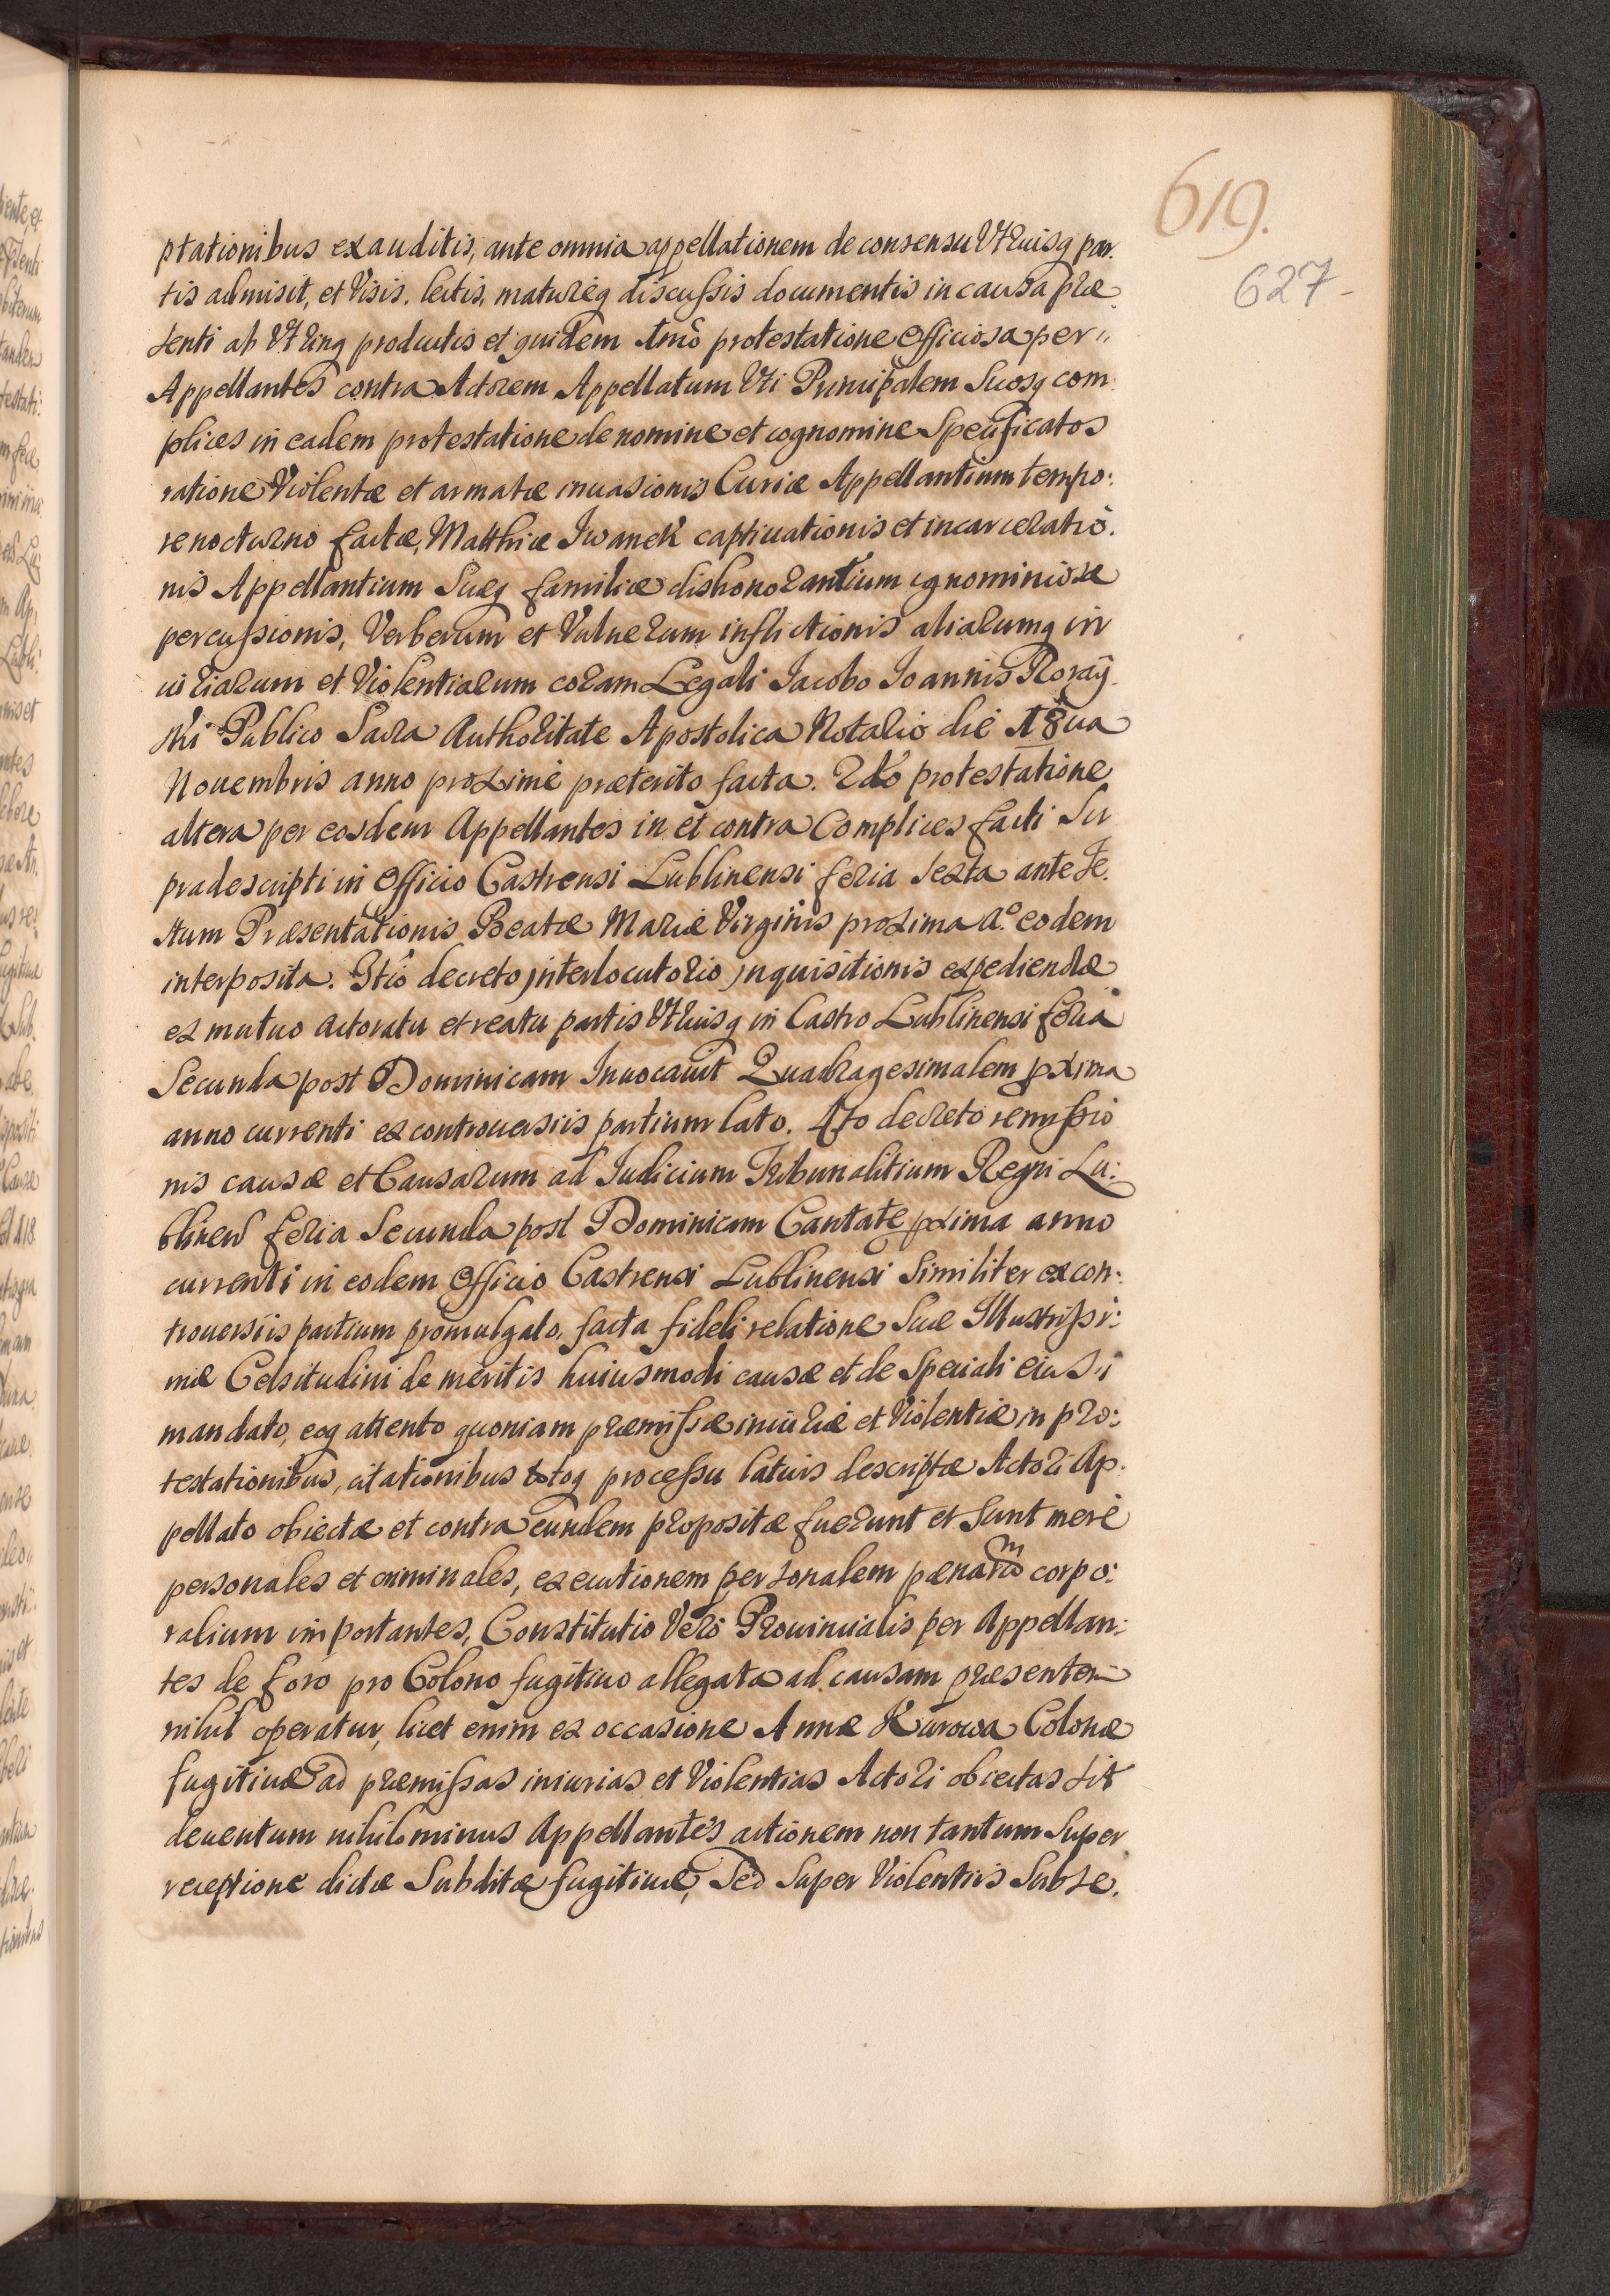 619.
627-
ptationibus exauditis, ante omnia appellationem de consensu Vtriusq par:
tis admisit, et Visis, lectis, matureq discussis documentis in causa præ
senti ab Vtrinq productis et quidem Imo protestatione Officiosa per
Appellantes contra Actorem Appellatum Vti Principalem Suosq com
plices in eadem protestatione de nomine et cognomine Specificatos
ratione Violentæ et armatæ inuasionis Curiæ Appellantium tempo:
re nocturno factæ, Matthiæ Iwanek captiuationis et incarceratio.
nis Appellantium Suæq familiæ dishonorantium ignominiosæ
percussionis, Verberum et Vulnerum inflictionis aliarumq in
iuriarum et Violentiarum coram Legali Jacobo Joannis Roray
ski Publico Sacra Authoritate Apostolica Notario die 18ua
Nouembris anno proxime præterito facta. 2do protestatione
altera per eosdem Appellantes in et contra Complices facti Su
pradescripti in Officio Castrensi Lublinensi feria Sexta ante Fe.
stum Præsentationis Beatæ Mariæ Virginis proxima Aº. eodem
interposita. 3tio decreto interlocutorio inquisitionis expediendæ
ex mutuo actoratu et reatu partis Vtriusq in Castro Lublinensi feria
Secunda post Dominicam Inuocauit Quadragesimalem pxima
anno currenti ex controuersiis partium lato. 4to decreto remissio
nis causæ et Causarum ad Iudicium Tribunalitium Regni Lu:
blinen feria Secunda post Dominicam Cantate pxima anno
currenti in eodem Officio Castrensi Lublinensi Similiter ex con:
trouersiis partium promulgato, facta fideli relatione Suæ Illustrissi:
mæ Celsitudini de meritis huiusmodi causæ et de Speciali eius
mandato, eoq attento quoniam præmissæ iniuriæ et Violentiæ in pro:
testationibus, citationibus totoq processu latius descriptæ Actori Ap.
pellato obiectæ et contra eundem propositæ fuerunt et Sunt merè
personales et criminales, executionem personalem pænarum corpo:
ralium importantes, Constitutio Verò Prouincialis per Appellan:
tes de foro pro Colono fugitiuo allegata ad causam præsentem
nihil operatur, licet enim ex occasione Annæ Kurowa Colonæ
fugitiuæ ad præmissas iniurias et Violentias Actori obiectas sit
deuentum nihilominus Appellantes actionem non tantum Super
receptione dictæ Subditæ fugitiuæ, Sed Super Violentiis Subse.